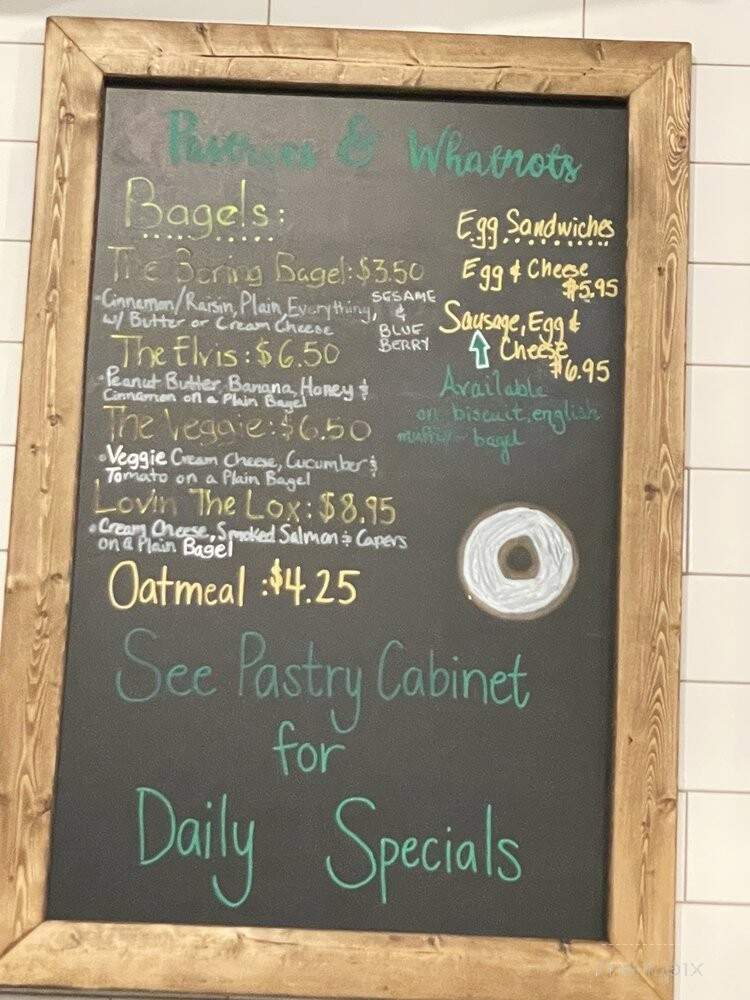 Pastries & Whatnots
Bagels:
The Boring Bagel: $3.50
•Cinnamon/Raisin, Plain, Everything,
w/ Butter or Cream Cheese
SESAME
&
BLUE
BERRY
The Elvis: $6.50
•Peanut Butter, Banana, Honey &
Cinnamon on a Plain Bagel
The Veggie: $6.50
•Veggie Cream Cheese, Cucumber &
Tomato on a Plain Bagel
Lovin The Lox: $8.95
•Cream Cheese, Smoked Salmon & Capers
on a Plain Bagel
Oatmeal : $4.25
Egg Sandwiches
Egg & Cheese
$5.95
Sausage, Egg &
Cheese
$6.95
Available
on biscuit, english
muffin - bagel
See Pastry Cabinet
for
Daily Specials